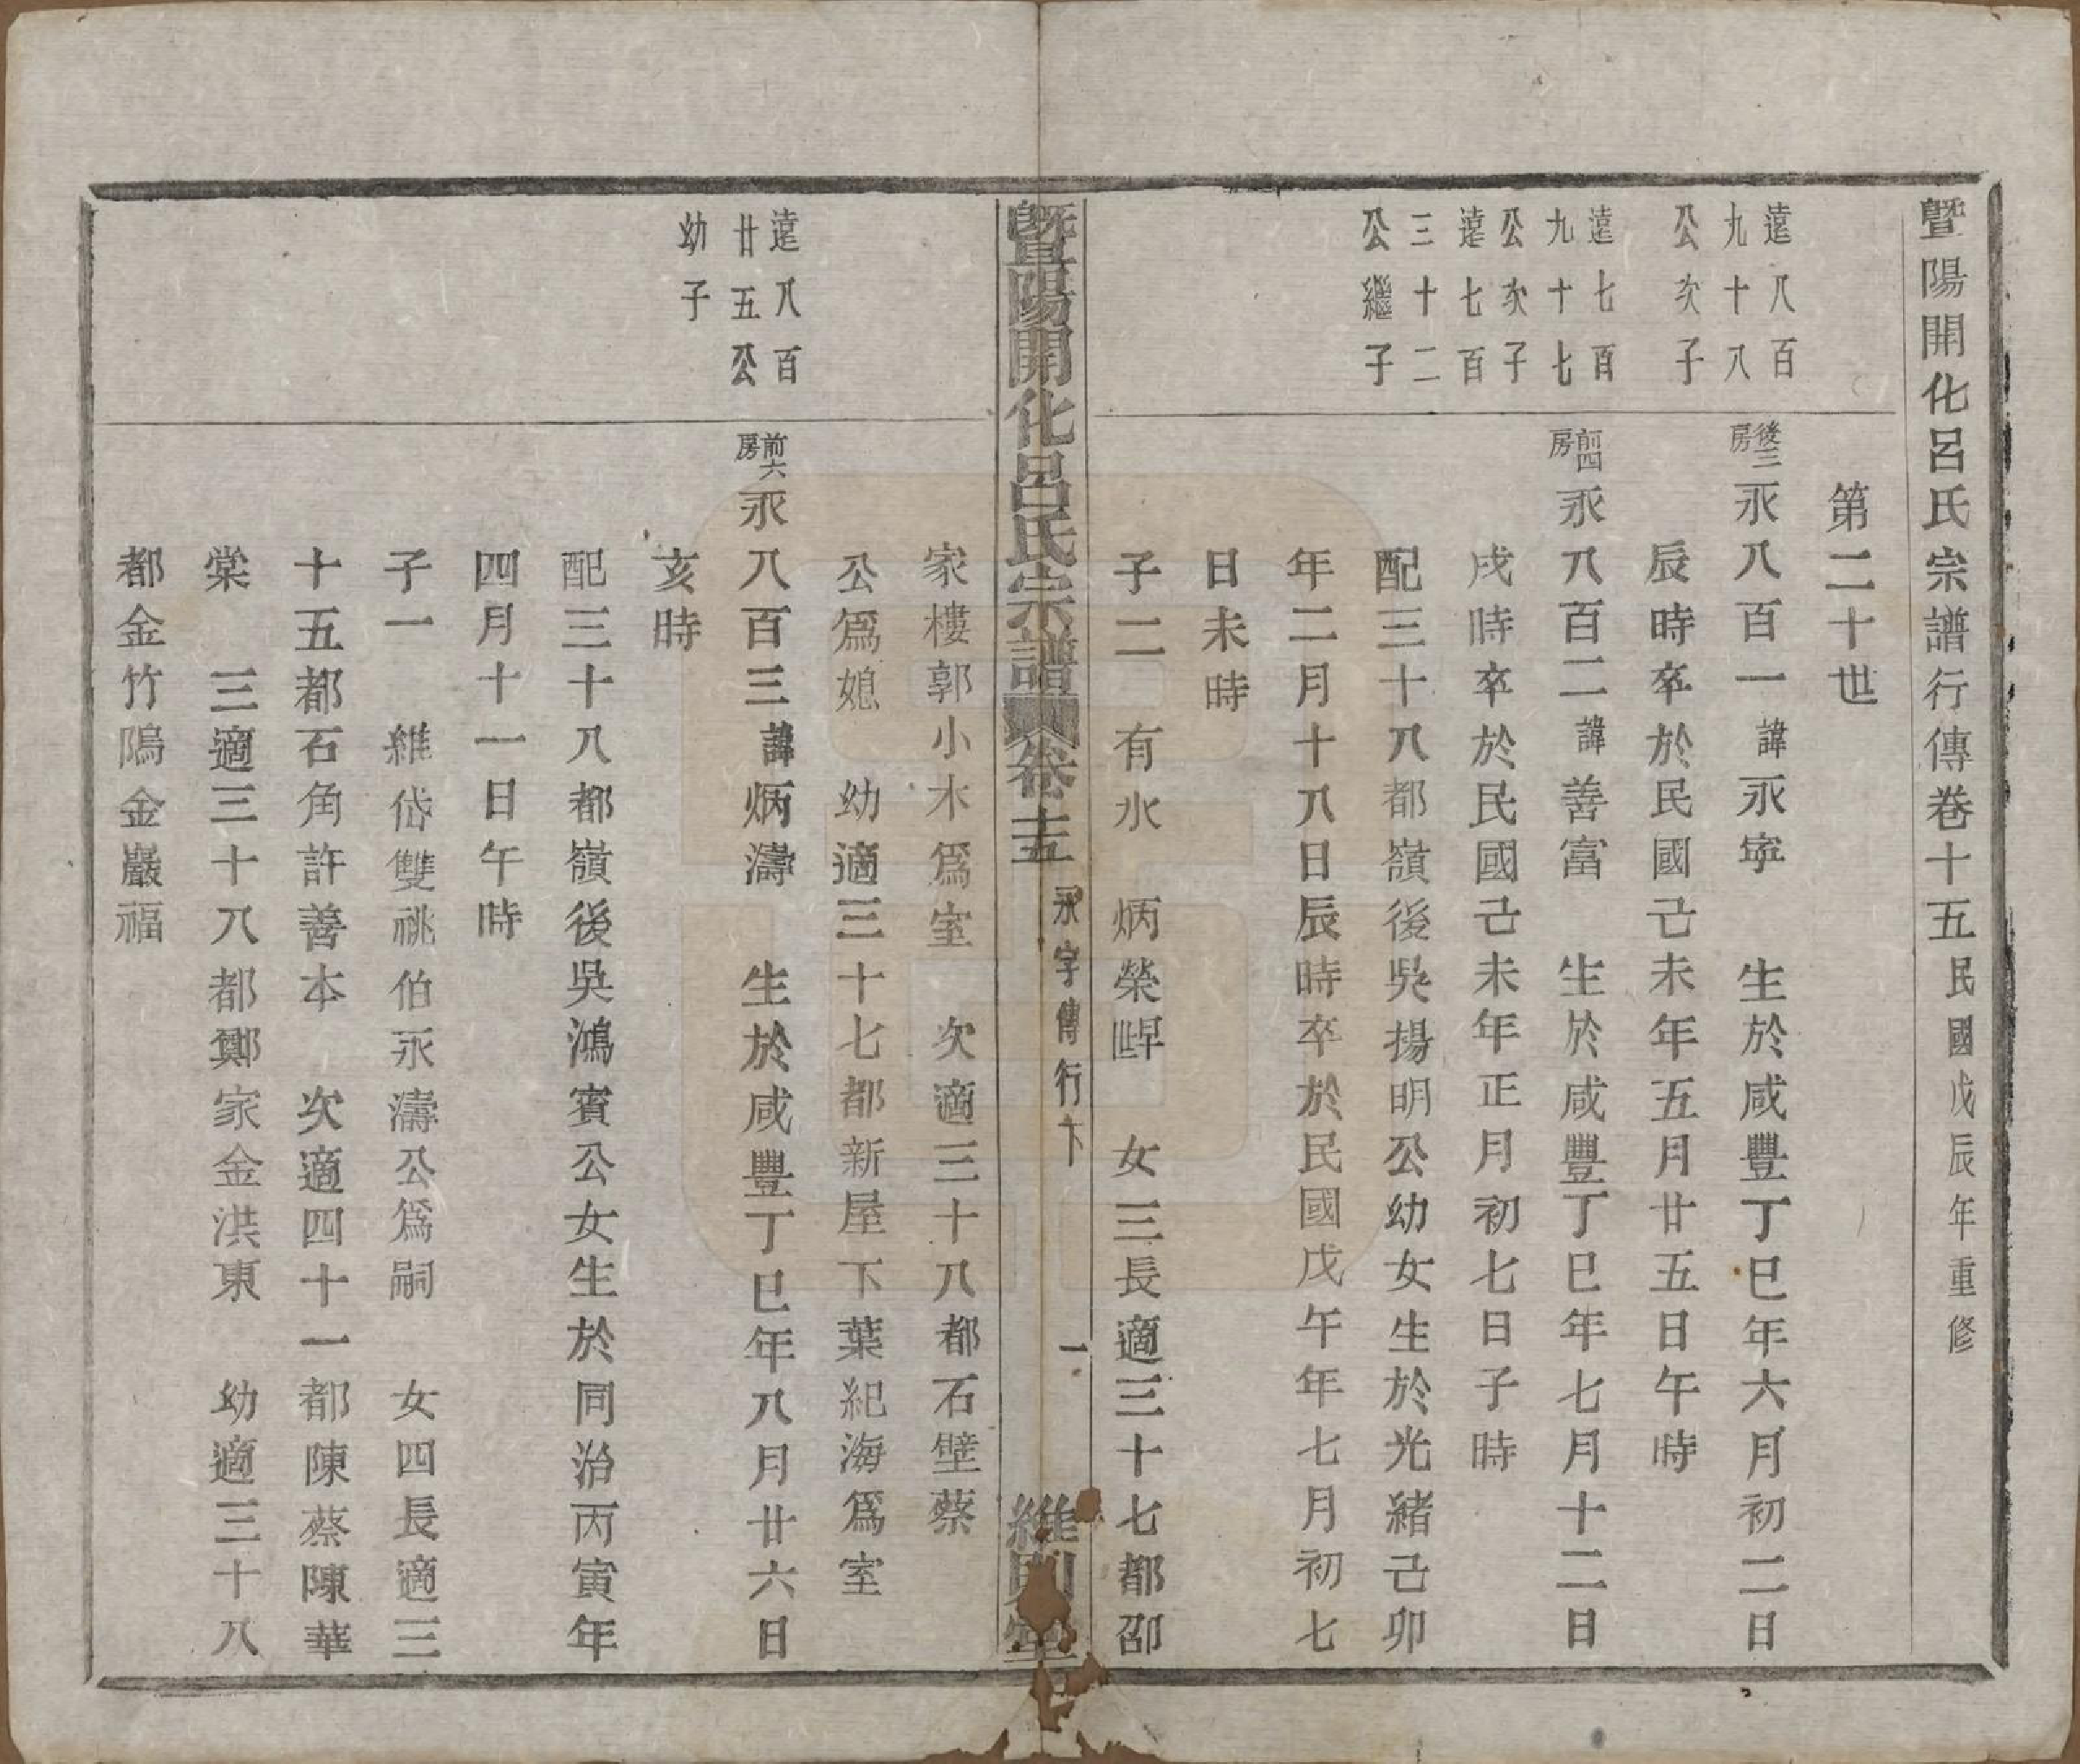 暨陽開化呂氏宗譜行傳卷十五民國戊辰年重修
第二十世
遠八百
九十八
公次子
後三房永八百一諱永寧 生於咸豐丁巳年六月初二日
辰時卒於民國己未年五月廿五日午時
遠七百
九十七
公次子
前四房永八百二諱善富 生於咸豐丁巳年七月十二日
戌時卒於民國己未年正月初七日子時
遠七百
三十二
公繼子
配三十八都嶺後吳揚明公幼女生於光緒己卯
年二月十八日辰時卒於民國戊午年七月初七
日未時
子二 有水 炳榮 女三長適三十七都邵
暨陽開化呂氏宗譜 卷十五 永字傳行下 一 維則堂
家樓郭小木為室 次適三十八都石壁蔡
公為媳 幼適三十七都新屋下葉紀海為室
遠八百
廿五公
幼子
前六房永八百三諱炳濤 生於咸豐丁巳年八月廿六日
亥時
配三十八都嶺後吳鴻賓公女生於同治丙寅年
四月十一日午時
子一 維岱雙祧伯永濤公為嗣 女四長適三
十五都石角許善本 次適四十一都陳蔡陳華
棠 三適三十八都鄭家金洪東 幼適三十八
都金竹隝金巖福